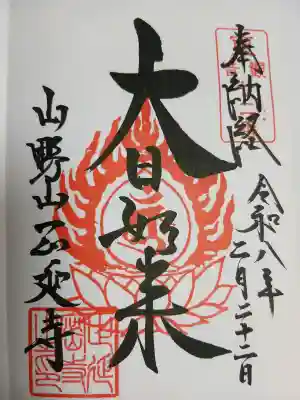 奉納経
令和八年
二月二十二日
大日如来
山野山正延寺